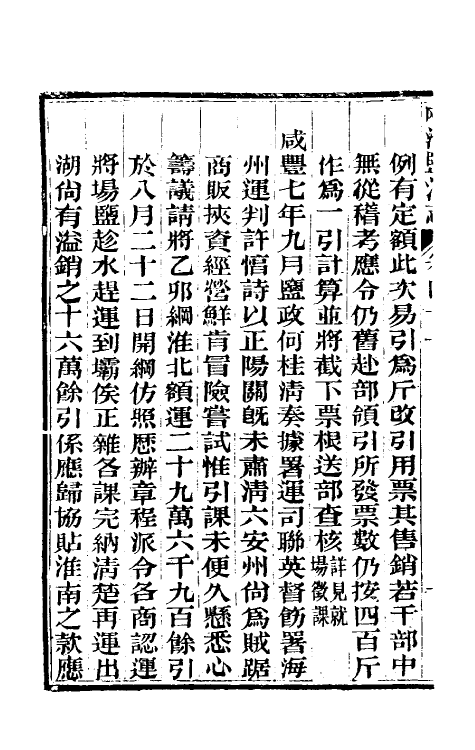 例有定額此次易引爲斤改引用票其售銷若干部中
無從稽考應令仍舊赴部領引所發票數仍按四百斤
作爲一引計算並將截下票根送部查核詳見就場徵課
咸豐七年九月鹽政何桂清奏據署運司聯英督飭署海
州運判許惇詩以正陽關旣未肅清六安州尙爲賊踞
商販挾資經營鮮肯冒險嘗試惟引課未便久懸悉心
籌議請將乙卯綱淮北額運二十九萬六千九百餘引
於八月二十二日開綱仿照歷辦章程派令各商認運
將場鹽趁水趕運到壩俟正雜各課完納清楚再運出
湖尙有溢銷之十六萬餘引係應歸協貼淮南之款應